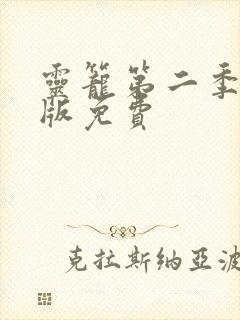 靈籠第二季
版免費
克拉斯納亞波